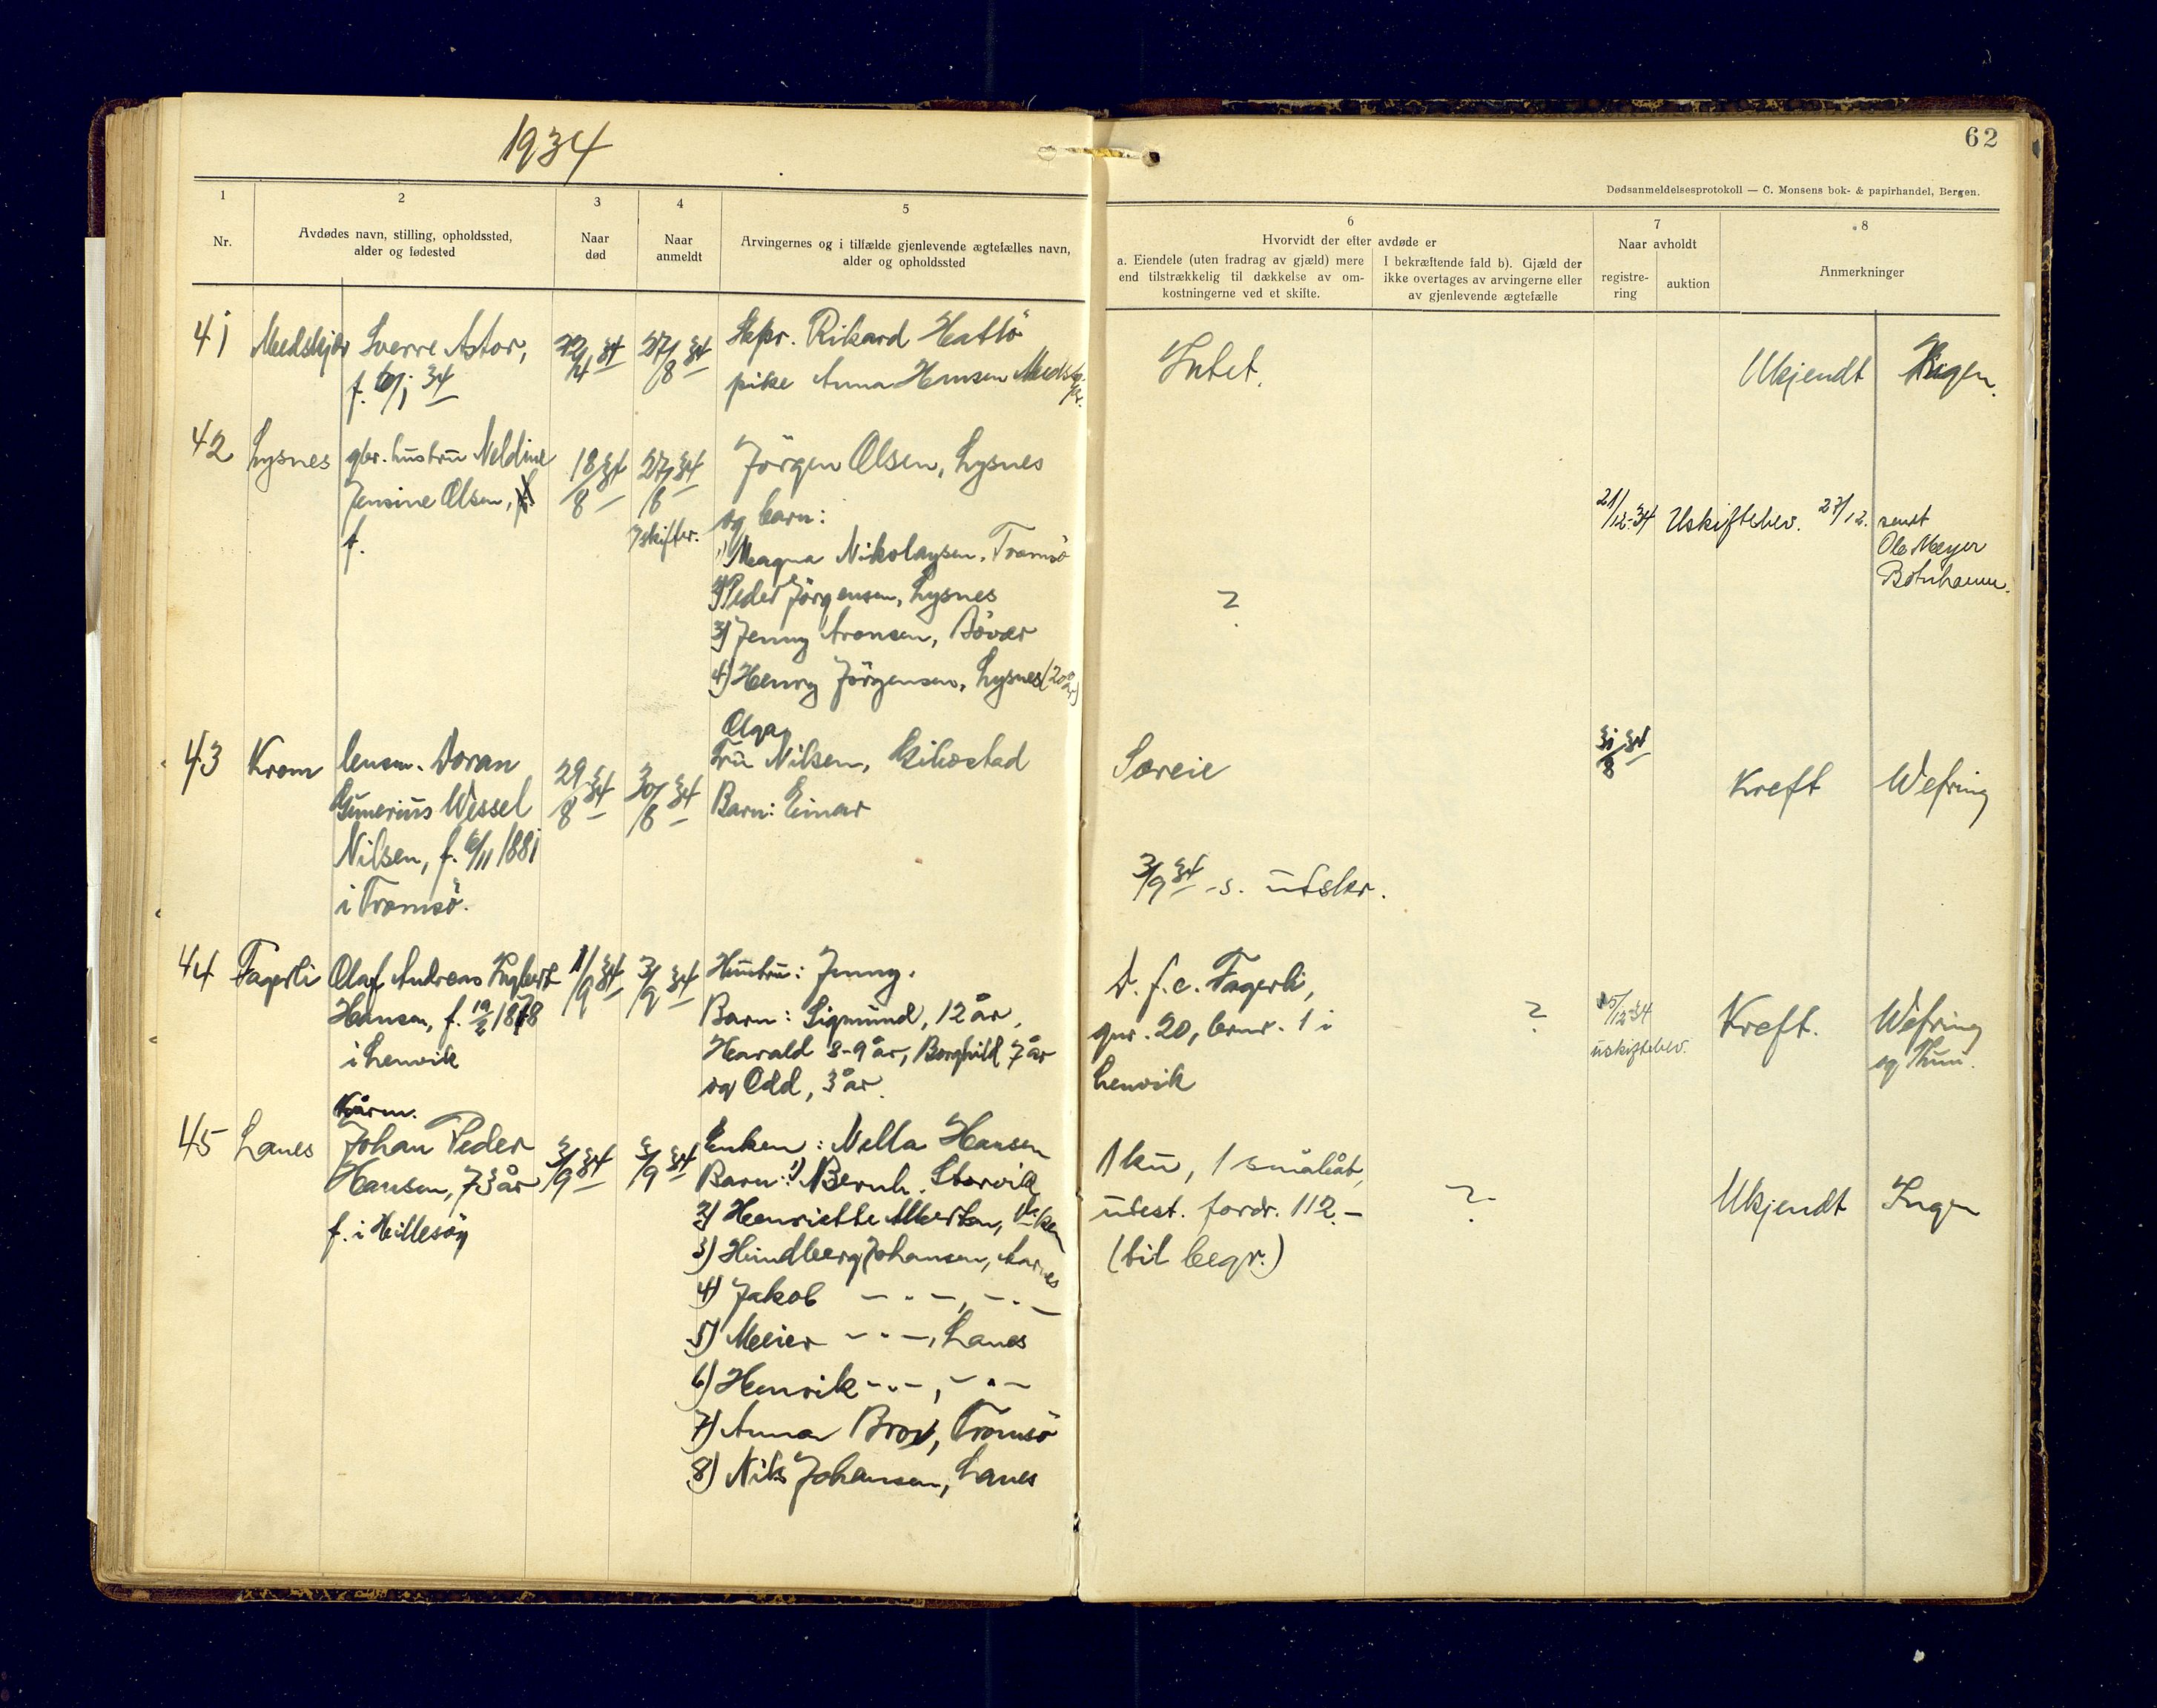 1934
62
Dødsanmeldelsesprotokoll — C. Monsens bok- & papirhandel, Bergen.
1 2 3 4 5 6 7 8
Nr.
Avdødes navn, stilling, opholdssted,
alder og fødested
Naar
død
Naar
anmeldt
Arvingernes og i tilfælde gjenlevende ægtefælles navn,
alder og opholdssted
Hvorvidt der efter avdøde er
a. Eiendele (uten fradrag av gjæld) mere
end tilstrækkelig til dækkelse av om-
kostningerne ved et skifte.
I bekræftende fald b). Gjæld der
ikke overtages av arvingerne eller
av gjenlevende ægtefælle
Naar avholdt
registre-
ring
auktion
Anmerkninger
41 Sverre Astor,
27/8 34
Rikard Hattö
pike Anna Hansen
Intet.
Ukjendt
Ingen.
42 Lysnes
gbr. hustru Neldine
Jensine Olsen,
f.
18/8 34
27/8 34
Jörgen Olsen, Lysnes
og barn:
1) Magna Nikolaysen, Tromsö
2) Peder Jörgensen, Lysnes
3) Jenny Aronsen, Bövær
4) Henry Jörgensen, Lysnes (20 år)
?
21/12-34 Uskiftebev. 27/12. sendt
Ole Meyer
Botnhamn.
43 Krom
lensm. Doran
Gunerius Wessel
Nilsen, f. 6/11 1881
i Tromsö.
29/8 34
30/8 34
Olga
Fru Nilsen, Gibostad
Barn: Einar
Særeie
3/9 34 - s. utskr.
31/8 34
Kreft
Wefring
44 Fagerli
Olaf Andreas Ingbert
Hansen, f. 19/2 1878
i Lenvik
1/9 34
3/9 34
Hustru: Jenny.
Barn: Sigmund, 12 år,
Harald 8-9 år, Borghild 7 år
og Odd, 3 år.
D. f. e. Fagerli,
gnr. 20, brnr. 1 i
Lenvik
?
15/12-34
uskiftebev.
Kreft.
Wefring
og Thuu.
45 Lanes
Kårm.
Johan Peder
Hansen, 73 år
f. i Hillesöy
3/9 34
3/9 34
Enken: Nella Hansen
Barn: 1) Bernh. Storvik
2) Henriette Albertsen,
3) Hindberg Johansen, Aarnes
4) Jakob — " —, — " —
5) Meier — " —, Lanes
6) Henrik — " —, — " —
7) Anna Brox, Tromsö
8) Nils Johansen, Lanes
1 ku, 1 småbåt,
utest. fordr. 112.—
(til begr.)
?
Ukjendt
Ingen